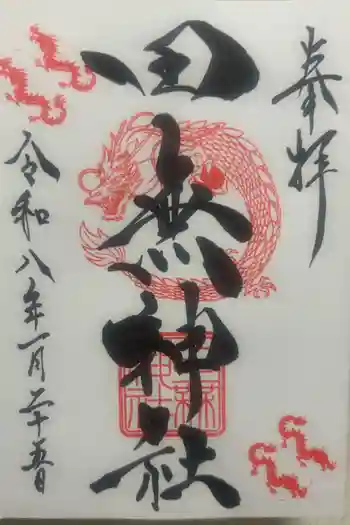 奉拝
田無神社
令和八年一月二十五日